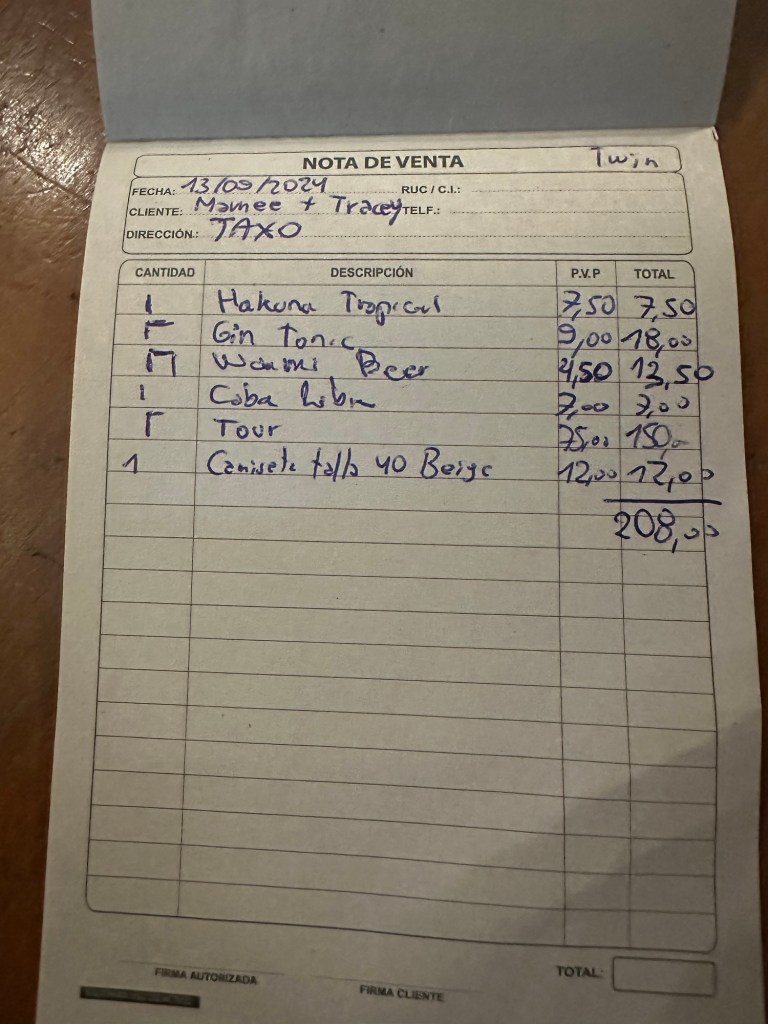 NOTA DE VENTA Twin
FECHA: 13/09/2024 RUC / C.I.:
CLIENTE: Mamee + Tracey TELF.:
DIRECCIÓN.: TAXO
CANTIDAD DESCRIPCIÓN P.V.P TOTAL
1 Hakuna Tropical 7,50 7,50
Gin Tonic 9,00 18,00
Beer 4,50 13,50
1 Cuba Libre 7,00 7,00
Tour 75,00 150,-
1 Camiseta talla 40 Beige 12,00 12,00
208,00
FIRMA AUTORIZADA FIRMA CLIENTE TOTAL: